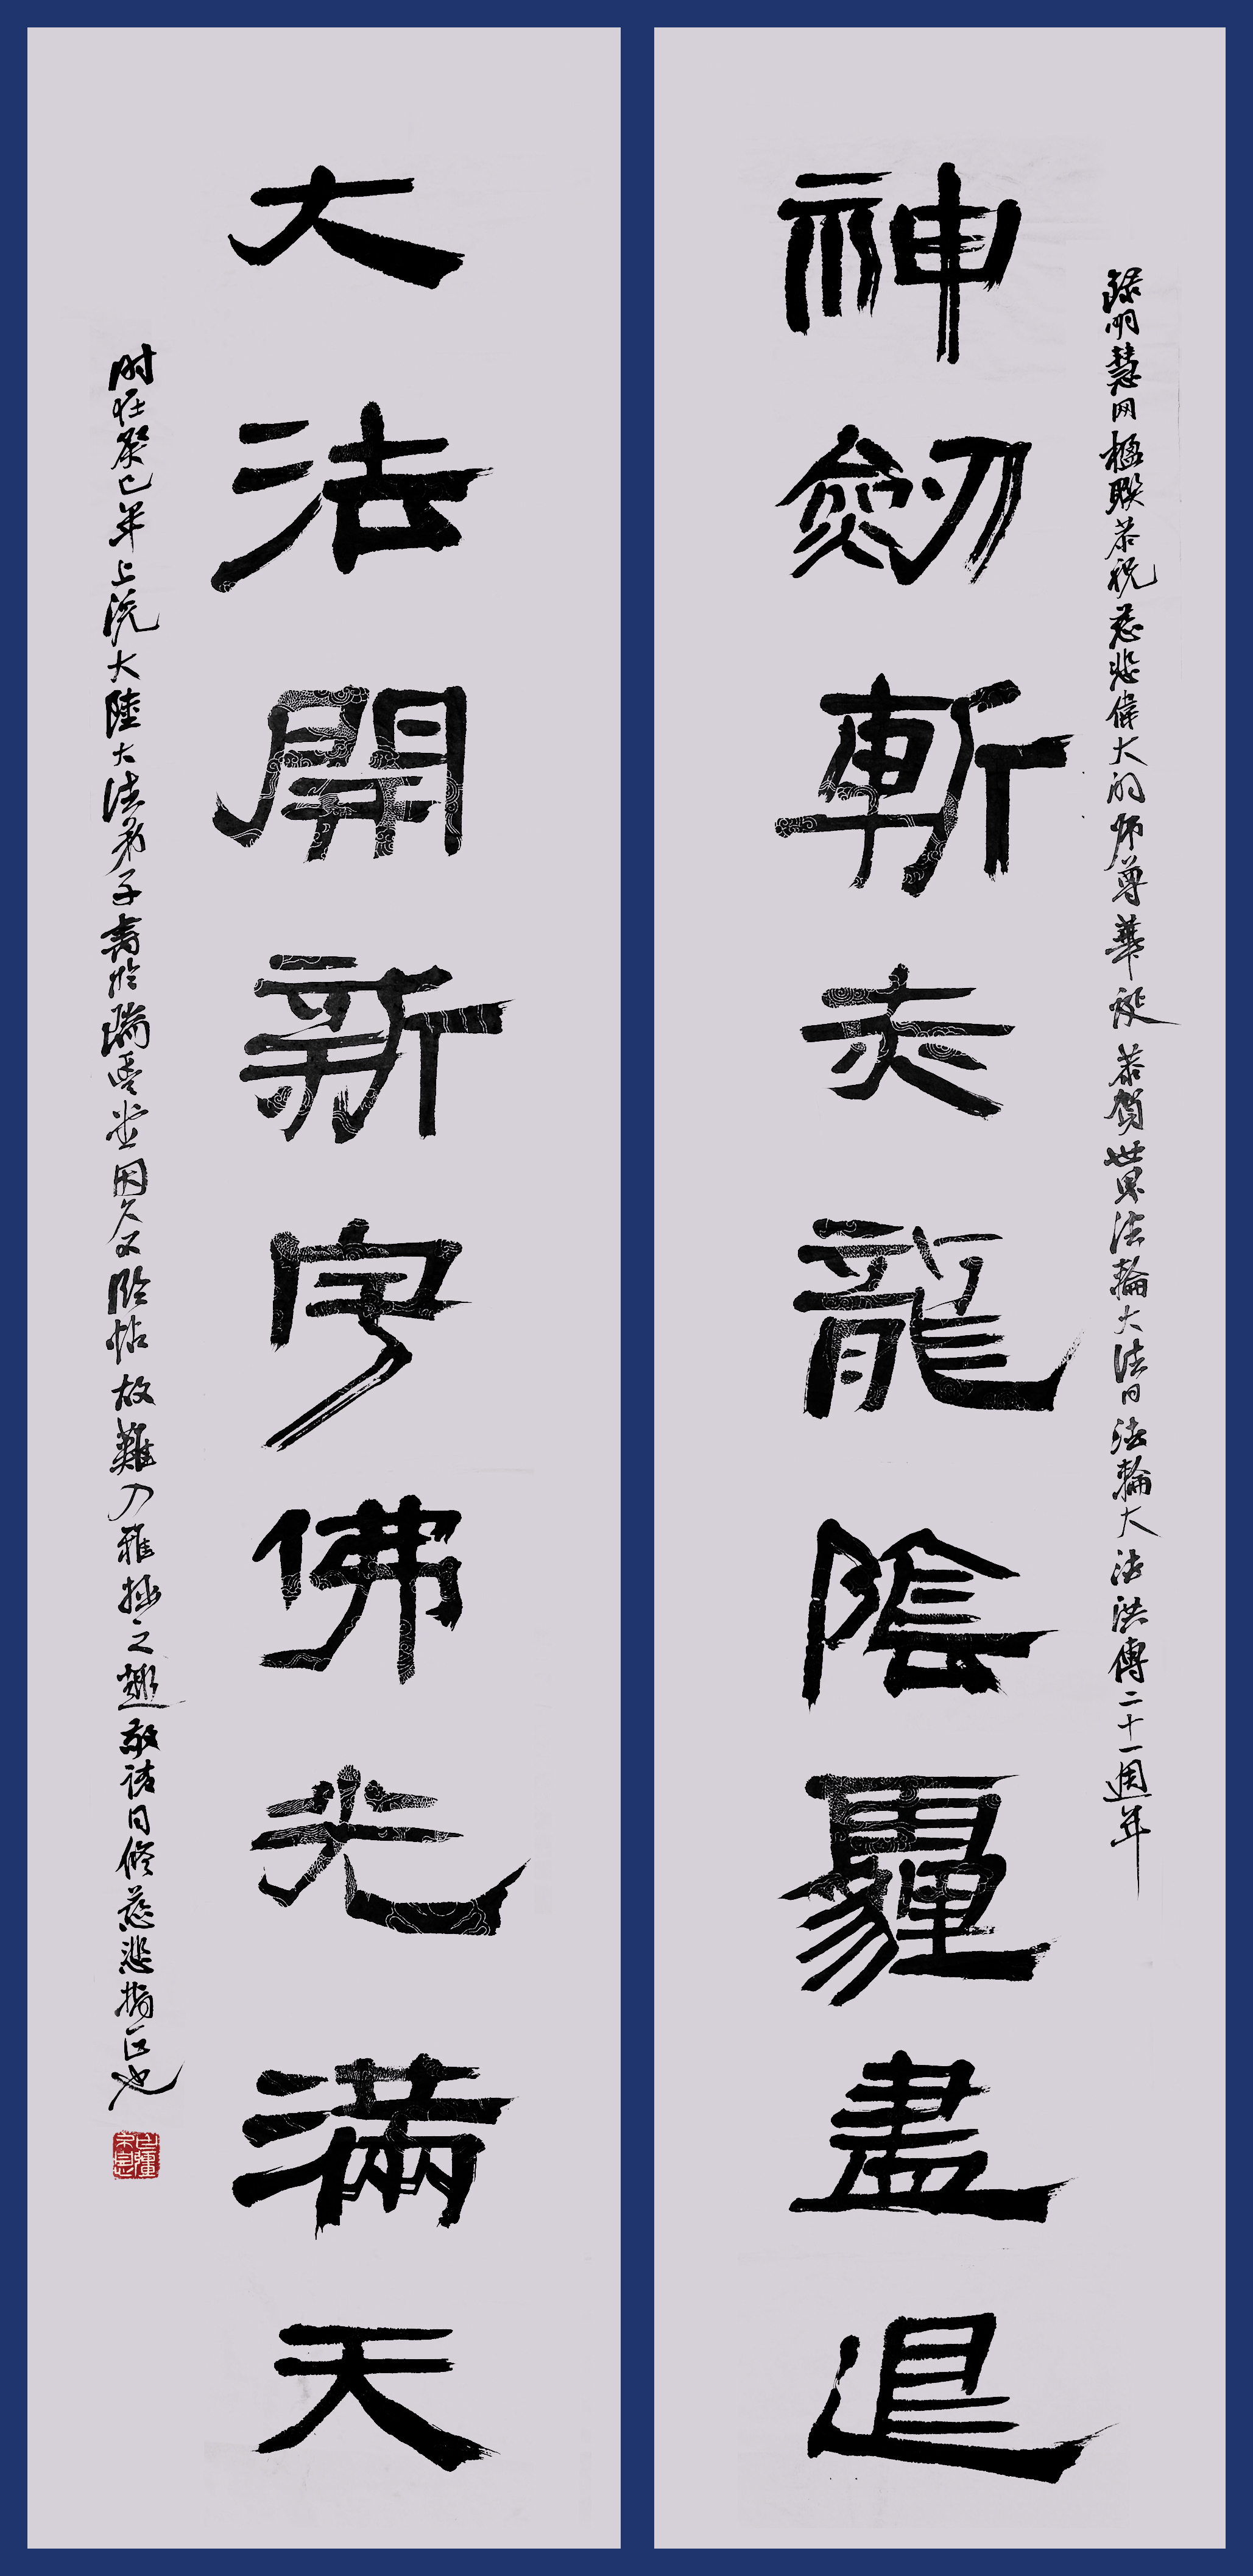 錄明慧网楹聯恭祝慈悲偉大的师尊華誕恭賀世界法輪大法日法輪大法洪傳二十一週年
神劍斬赤龍陰霾盡退
大法開新宇佛光滿天
时在癸巳年上浣大陸大法弟子書於瑞雪堂因久不臨帖故難入雅拙之趣敬请同修慈悲指正也